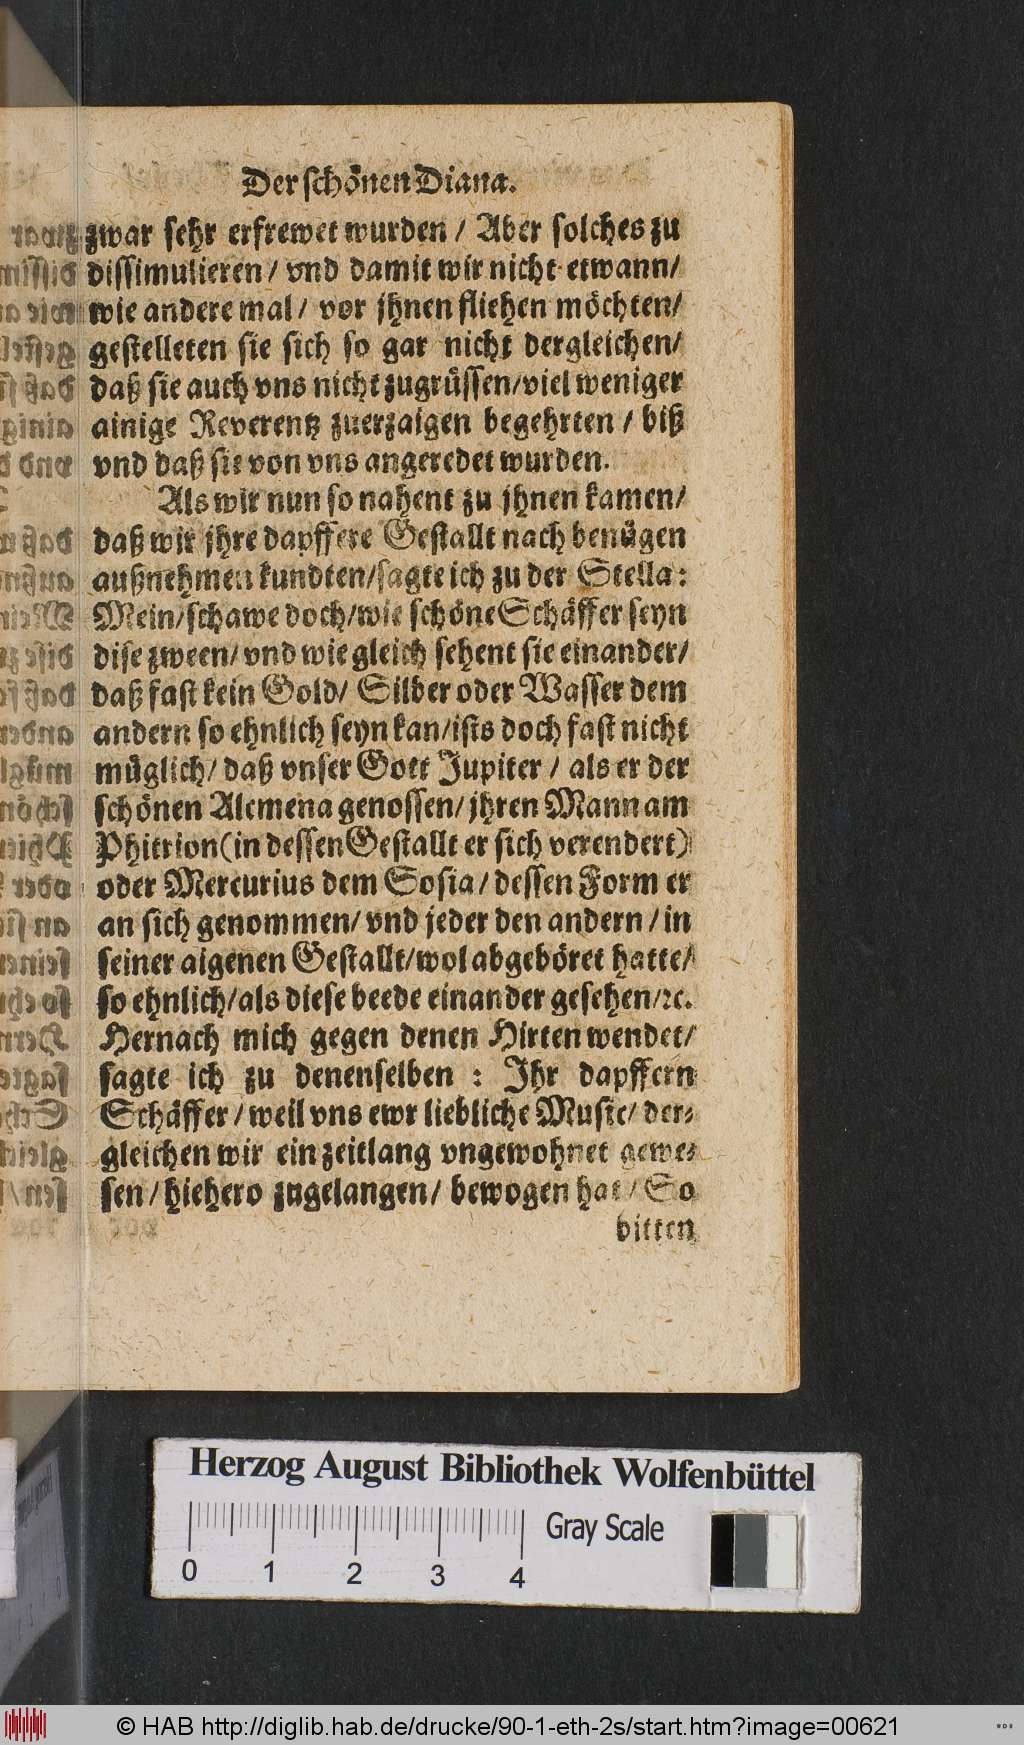 Der schönen Diana.
zwar sehr erfrewet wurden / Aber solches zu
dissimulieren / vnd damit wir nicht etwann /
wie andere mal / vor jhnen fliehen möchten /
gestelleten sie sich so gar nicht dergleichen /
daß sie auch vns nicht zugrüssen / viel weniger
ainige Reverentz zuerzaigen begehrten / biß
vnd daß sie von vns angeredet wurden.
Als wir nun so nahent zu jhnen kamen /
daß wir jhre dapffere Gestallt nach benügen
außnehmen kundten / sagte ich zu der Stella :
Mein / schawe doch / wie schöne Schäffer seyn
dise zween / vnd wie gleich sehent sie einander /
daß fast kein Gold / Silber oder Wasser dem
andern so ehnlich seyn kan / ists doch fast nicht
müglich / daß vnser Gott Jupiter / als er der
schönen Alcmena genossen / jhren Mann am
Phitrion (in dessen Gestallt er sich verendert)
oder Mercurius dem Sosia / dessen Form er
an sich genommen / vnd jeder den andern / in
seiner aigenen Gestallt / wol abgeböret hatte /
so ehnlich / als diese beede einander gesehen / ꝛc.
Hernach mich gegen denen Hirten wendet /
sagte ich zu denenselben : Jhr dapffern
Schäffer / weil vns ewr liebliche Music / der-
gleichen wir ein zeitlang vngewohnet gewe-
sen / hiehero zugelangen / bewogen hat / So
bitten
Herzog August Bibliothek Wolfenbüttel
Gray Scale
0 1 2 3 4
© HAB http://diglib.hab.de/drucke/90-1-eth-2s/start.htm?image=00621